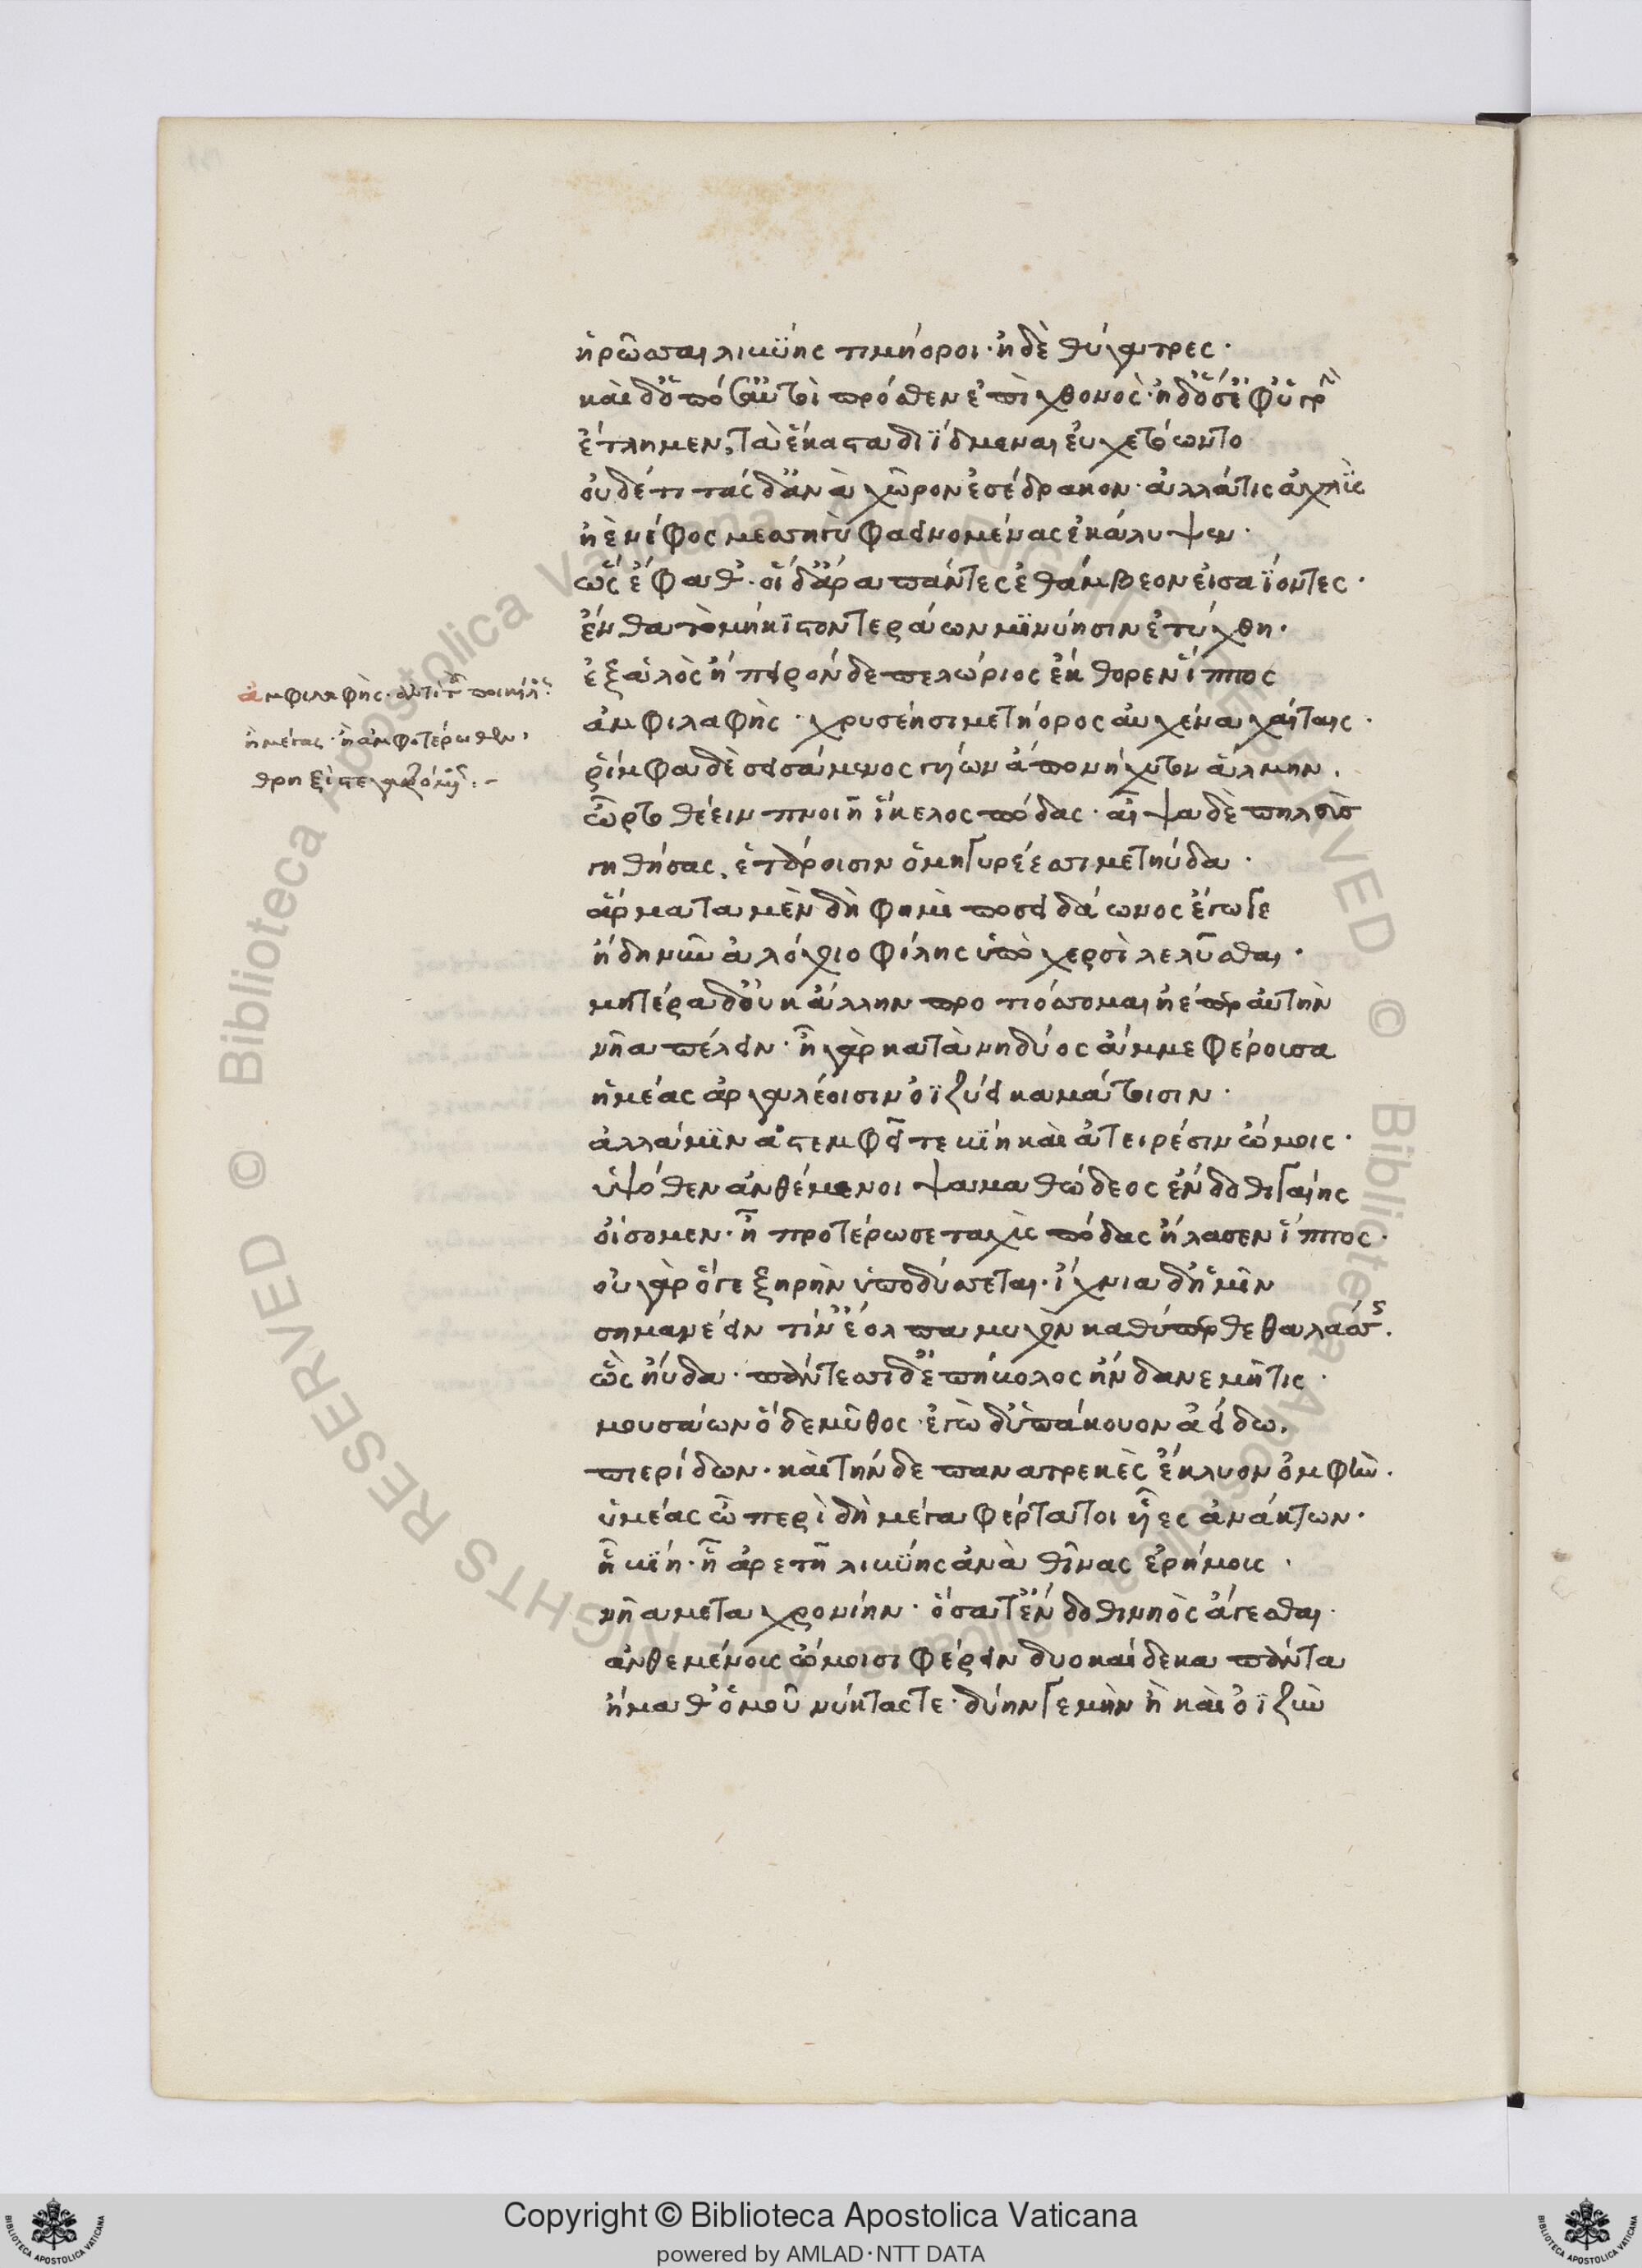 ἡρῶσσαι λιβύης τιμήοροι· ἠδὲ θύγατρες·
καὶ δ' ὁπόσ' αὐτοὶ πρόσθεν ἐπὶ χθονὸς· ἠδ' ὅσ' ἐφ' ὑγρὴν
ἔτλημεν, τὰ ἕκαστα διΐδμεναι εὐχετόωντο
οὐδέτι τάσδ' ἀνὰ χῶρον ἐσέδρακον· ἀλλάτις ἀχλὺς
ἠὲ νέφος μεσσηγὺ φαεινομένας ἐκάλυψεν·
ὣς ἔφαθ'· οἱ δ' ἄρα πάντες ἐθάμβεον εἰσαΐοντες·
ἔνθα τὸ μήκιστον τεράων μινύησιν ἐτύχθη·
ἐξ ἁλὸς ἤπειρόνδε πελώριος ἔκθορεν ἵππος
ἀμφιλαφὴς· χρυσέησι μετήορος αὐχένα χαίταις·
ἀμφιλαφὴς· ἀντὶ τοῦ ποικίλος
ἢ μέγας· ἢ ἀμφοτέρωθεν,
θρηξὶ
ῥίμφα δὲ σεισάμενος γυίων ἄπο νήχυτον ἅλμην.
ὦρτο θέειν πνοιῇ ἴκελος πόδας· αἶψα δὲ πηλεὺς
γηθήσας, ἑτάροισιν ὁμηγυρέεσσι μετηύδα·
ἅρματα μὲν δὴ φημὶ ποσειδάωνος ἔγωγε
ἤδη νῦν ἀλόχοιο φίλης ὑπὸ χερσὶ λελῦσθαι·
μητέρα δ' οὐκ ἄλλην προτιόσσομαι ἠέπερ αὐτὴν
νῆα πέλειν· ἦ γὰρ κατὰ νηδύος ἄμμε φέροισα
ἡμέας ἀργαλέοισιν ὀϊζύει καμάτοισιν·
ἀλλά μιν ἀστεμφεῖ τε βίη καὶ ἀτειρέσιν ὤμοις·
ὑψόθεν ἀνθέμενοι ψαμαθώδεος ἔνδοθι γαίης
οἴσομεν· ἧ προτέρωσε ταχὺς πόδας ἤλασεν ἵππος·
οὐ γὰρ ὅγε ξηρὴν ὑποδύσσεται· ἴχνια δ' ἡμῖν
σημανέειν τιν' ἔολπα μυχὸν καθύπερθε θαλάσσης.
ὣς ηὔδα· πάντεσσι δ' ἐπήβολος ἥνδανε μῆτις·
μουσάων ὅδε μῦθος· ἐγὼ δ' ὑπάκουον ἀείδω.
πιερίδων· καὶ τήνδε πανατρεκὲς ἔκλυον ὀμφὴν.
ὑμέας ὦ περὶ δὴ μέγα φέρτατοι υἷες ἀνάκτων·
ᾗ βίη· ᾗ ἀρετῇ λιβύης ἀνὰ θῖνας ἐρήμους·
νῆα μεταχρονίην· ὅσα τ' ἔνδοθι νηὸς ἄγεσθαι·
ἀνθεμένους ὤμοισι φέρειν δυοκαίδεκα πάντα
ἤμαθ' ὁμοῦ νύκτας τε· δύην γε μὴν ἢ καὶ ὀϊζὺν
Copyright © Biblioteca Apostolica Vaticana
powered by AMLAD·NTT DATA